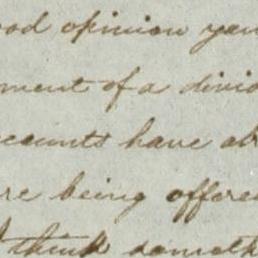 ood opinion you
ment of a divid
ccounts have al
re being offere
I think someth